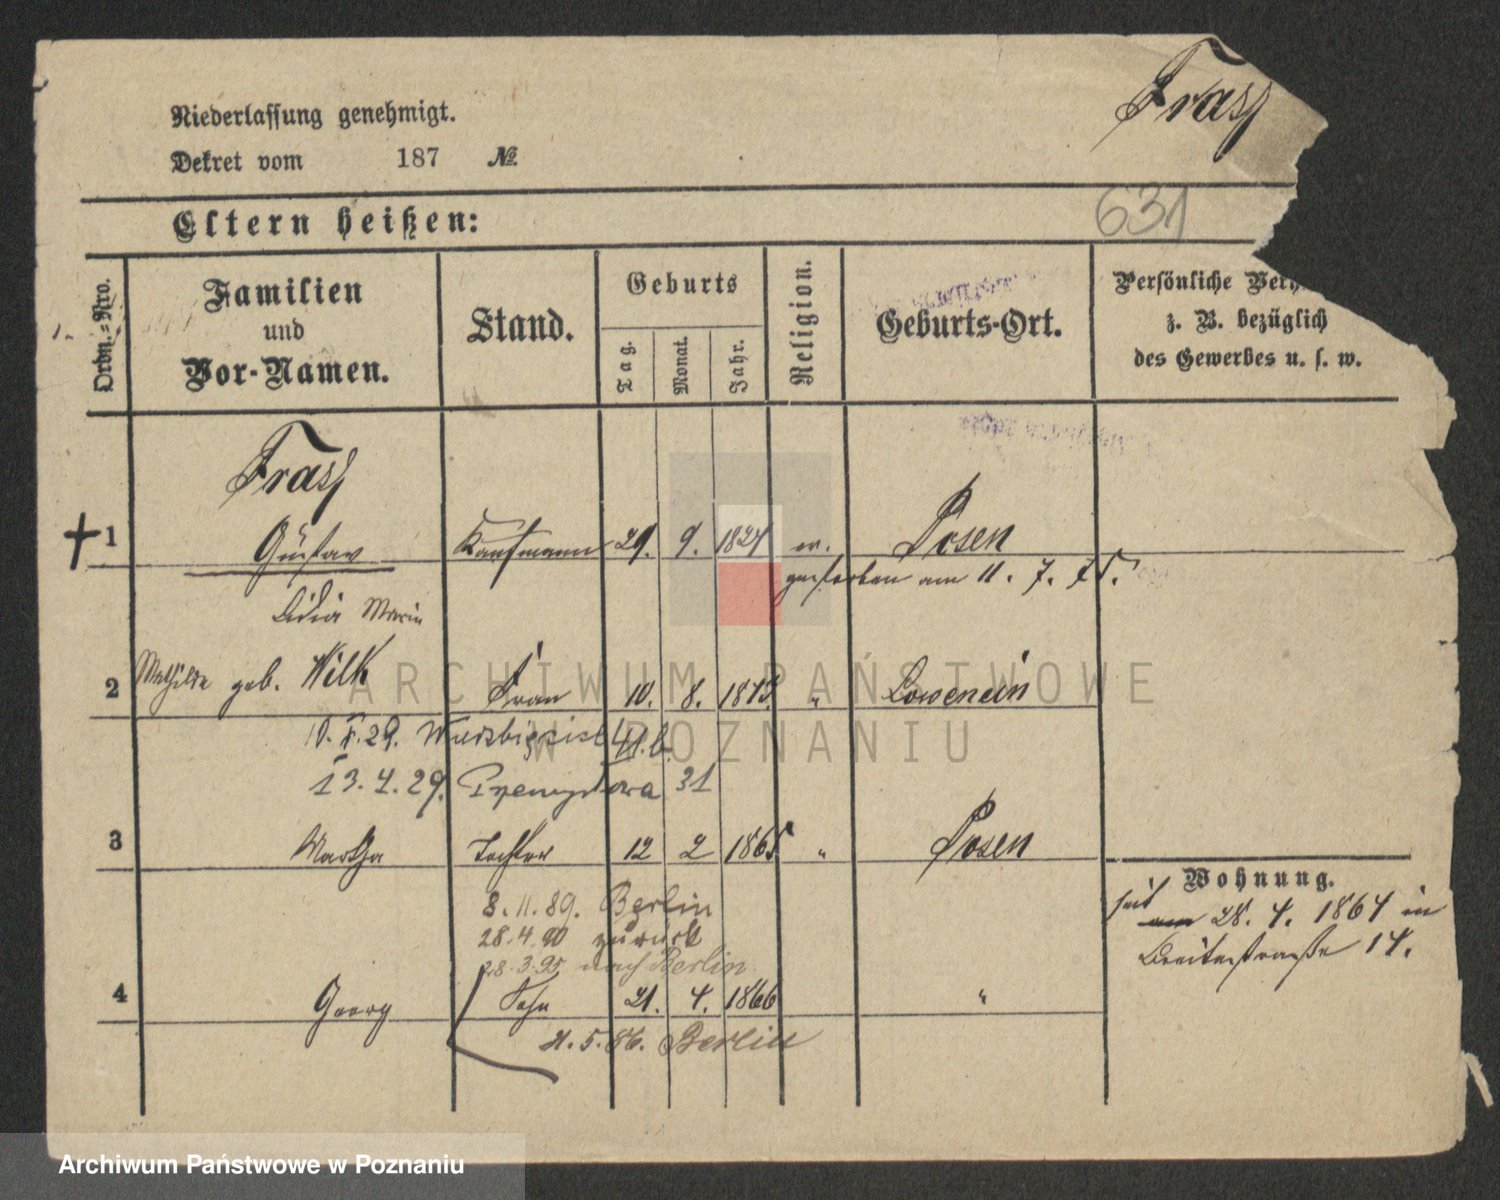 Frass
Niederlassung genehmigt.
Dekret vom 187 №
631
Eltern heißen:
Ordn.=Nro.
Familien
und
Vor-Namen.
Stand.
Geburts
Tag.
Monat.
Jahr.
Religion.
Geburts-Ort.
Persönliche
z. B. bezüglich
des Gewerbes u. s. w.
Frass
1 Gustav Kaufmann 29. 9. 1827 ev. Posen
gestorben am 11. 7. 75.
Lidia Marie
2 Mathilde geb. Wilk Frau 10. 8. "
29. 41.b.
13.4.29. 31
3 Martha Tochter 12 2 1865 " Posen
8.11.89. Berlin
28.4.90 zurück
28.3.95 nach Berlin
4 Georg Sohn 21. 4. 1866 "
5.86. Berlin
Wohnung.
seit
am 28. 4. 1864 in
Breitestraße 14.
ARCHIWUM PAŃSTWOWE
W POZNANIU
Archiwum Państwowe w Poznaniu